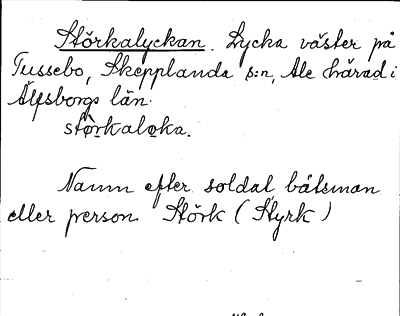 Störkalyckan. Lycka väster på
Tussebo, Skepplanda s:n, Ale härad i
Älfsborgs län.
störkaloka.
Namn efter soldat båtsman
eller person Störk (Styrk)